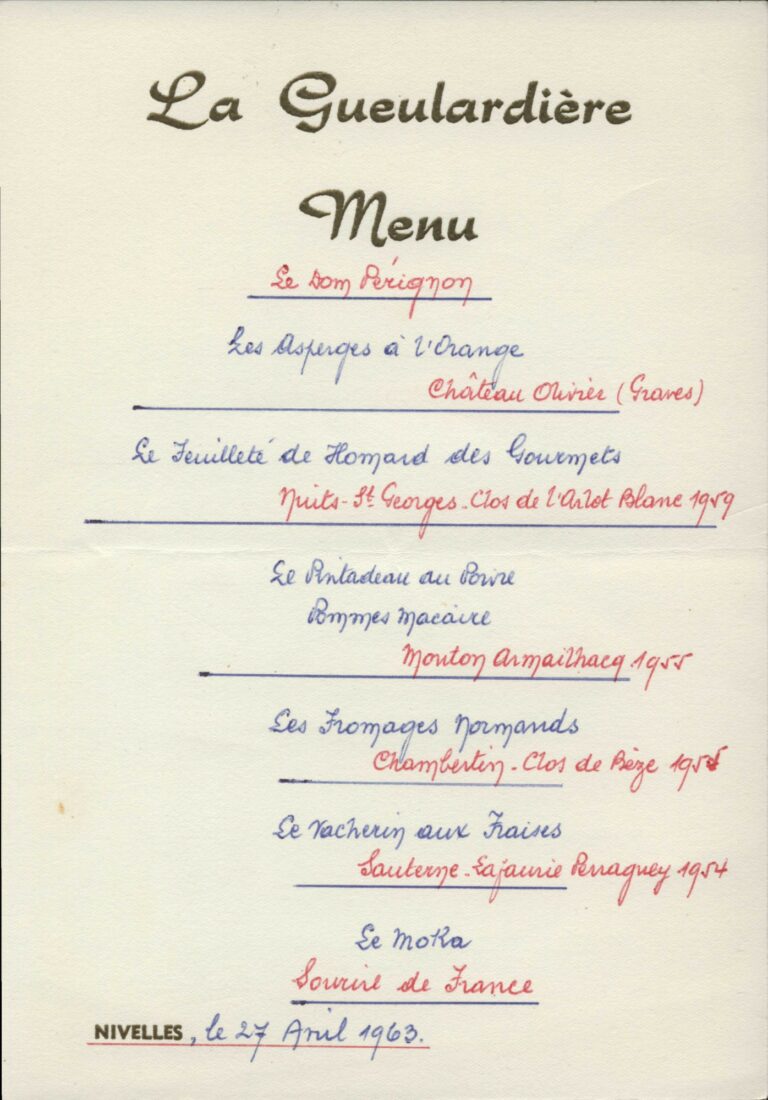 La Gueulardière
Menu
Le Dom Pérignon
Les Asperges à l'Orange
Château Olivier (Graves)
Le Feuilleté de Homard des Gourmets
Nuits-St Georges-Clos de l'Arlot Blanc 1959
Le Pintadeau au Poivre
Pommes Macaire
Mouton Armailhacq 1955
Les Fromages Normands
Chambertin-Clos de Bèze
Le Vacherin aux Fraises
Sauterne-Lafaurie Perraguey 1954
Le Moka
Sourire de France
NIVELLES, le 27 Avril 1963.